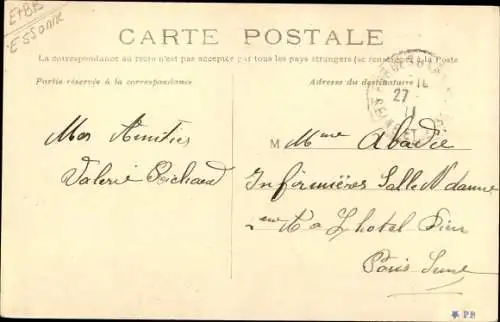 E+BE
ESSONN
CARTE POSTALE
La correspondance au recto n'est pas acceptée par tous les pays étrangers (se renseigner à la Poste
Partie réservée à la correspondance
Adresse du destinataire
27
11
Mes Amitiés
Valerie
M Mme Abadie
Infirmières Salle N dame
a L hotel Dieu
Paris Seine
PB